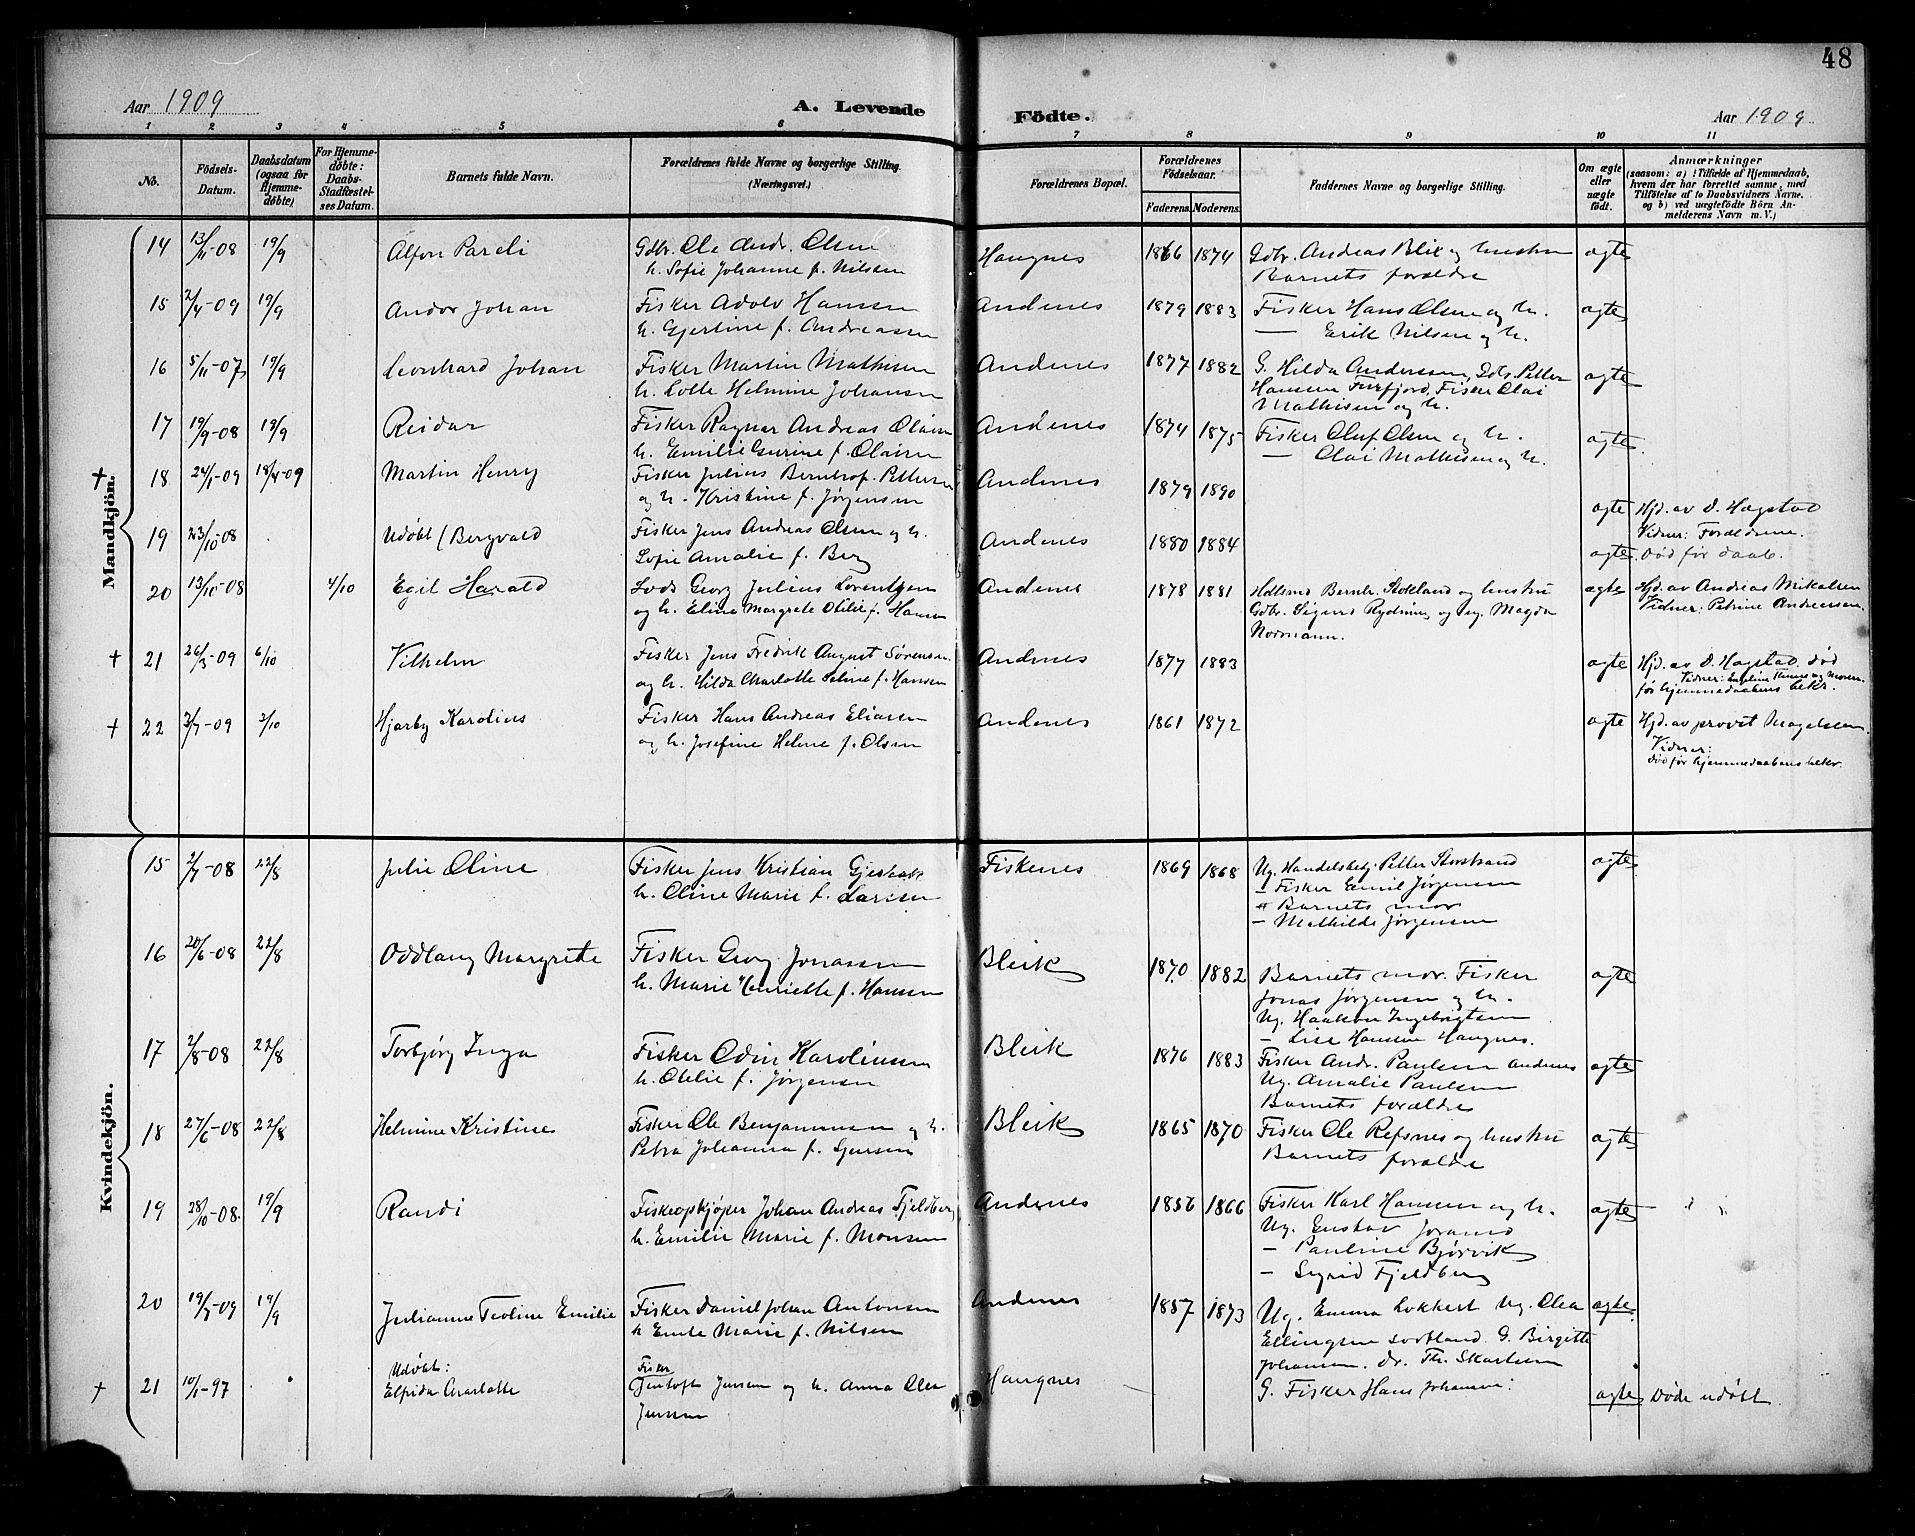 48
Aar 1909
A. Levende
Födte.
Aar 1909
1 2 3 4 5 6 7 8 9 10 11
No.
Födsels-Datum.
Daabsdatum (ogsaa for Hjemmedöbte)
For Hjemmedöbte: Daabs-Stadfæstelses Datum.
Barnets fulde Navn.
Forældrenes fulde Navne og borgerlige Stilling. (Næringsvei.)
Forældrenes Bopæl.
Forældrenes Födselsaar.
Faderens. Moderens.
Faddernes Navne og borgerlige Stilling.
Om ægte eller uægte födt.
Anmærkninger
(saasom: a) i Tilfælde af Hjemmedaab, hvem der har forrettet samme, med Tilföielse af to Daabsvidners Navne, og b) ved uægtefödte Börn Anmelderens Navn m. V.)
Mandkjön.
14 13/11-08 19/9 Alfon Pareli Gdbr. Ole Andr. Olsen Hangnes 1866 1874 Gdbr. Andreas Blix og hustru ægte
h. Sofie Johanne f. Nilsen Barnets forældre
15 2/4-09 19/9 Andor Johan Fisker Adolv Hansen Andenes 1879 1883 Fisker Hans Olsen og h. ægte
h. Gjertine f. Andreasen — Erik Nilsen og h.
16 5/11-07 19/9 Leonhard Johan Fisker Martin Mathisen Andenes 1877 1882 G. Hilda Anderssen, Gdb. Petter ægte
h. Lotte Helmine Johansen Hansen Furfjord, Fisker Olai
Mathisen og h.
17 19/9-08 19/9 Reidar Fisker Ragnar Andreas Olaisen Andenes 1874 1875 Fisker Oluf Olsen og h. ægte
h. Emilie Gurine f. Olaisen — Olai Mathisen og h.
† 18 24/1-09 18/4-09 Martin Henry Fisker Julius Berntrof Pettersen Andenes 1879 1890
og h. Kristine f. Jørgensen ægte Hjd. av D. Hagstad
Vidner: Forældrene.
19 23/10-08 Udøbt (Bergvald Fisker Jens Andreas Olsen og h. Andenes 1880 1884 ægte Død før daab.
Sofie Amalie f. Berg
20 13/10-08 4/10 Egil Harald Lods Georg Julius Lorentzen Andenes 1878 1881 Hdlsmd Bernh. Stokland og hustru ægte Hjd. av Andreas Mikalsen
og h. Eline Margrete Otilie f. Hansen Gdbr. Sigurd Rydning og ug. Magda Vidner: Petrine Andreassen
Normann.
† 21 26/3-09 6/10 Vilhelm Fisker Jens Fredrik August Sørensen Andenes 1877 1883 ægte Hjd. av D. Hagstad. død
og h. Hilda Charlotte Seline f. Hansen Vidner: og Moren
før hjemmedaabens bekr.
† 22 3/7-09 3/10 Hjarby Karolius Fisker Hans Andreas Eliasen Andenes 1861 1872 ægte Hjd. av provst Magelssen
og h. Josefine Helene f. Olsen Vidner:
død før hjemmedaabens bekr.
Kvindekjön.
15 2/7-08 22/8 Julie Oline Fisker Jens Kristian Gjesbak Fiskenes 1869 1868 Ug. Handelsbetj. Petter Storstrand ægte
h. Oline Marie f. Larsen — Fisker Emil Jørgensen
Barnets mor
— Mathilde Jørgensen
16 20/6-08 22/8 Oddlaug Margrete Fisker Georg Jonassen Bleik 1870. 1882 Barnets mor. Fisker ægte
h. Marie Henriette f. Hansen Jonas Jørgensen og h.
Ug. Haakon Ingebrigtsen
— Lise Hansen Hangnes.
17 2/8-08 22/8 Torbjørg Inga Fisker Odin Karoliussen Bleik 1876 1883 Fisker Andr. Paulsen Andenes ægte
h. Otelie f. Jørgensen Ug. Amalie Paulsen
Barnets forældre
18 27/6-08 22/8 Helmine Kristine Fisker Ole Benjaminsen og h. Bleik 1865 1870 Fisker Ole Refsnes og hustru ægte
Petra Johanna f. Sjursen Barnets forældre
19 28/10-08. 19/9 Randi Fiskeopkjøper Johan Andreas Fjeldberg Andenes 1856 1866 Fisker Karl Hansen og h. ægte
h. Emilie Marie f. Monsen Ug. Gustav
— Pauline Bjørvik
— Sigrid Fjeldberg
20 19/7-09 19/9 Julianne Teoline Emilie Fisker Daniel Johan Antonsen Andenes 1857 1873 Ug. Emma Lokkert Ug. Olea ægte
h Emile Marie f. Nilsen Ellingsen Sortland. G. Birgitte
Johansen. Dr. Th. Skartsen
Udøbt: Fisker
† 21 10/1-97 Elfrida Charlotte Jentoft Jensen og h. Anna Olea Hangnes G. Fisker Hans Johansen: ægte Døde udøbt.
Jenssen